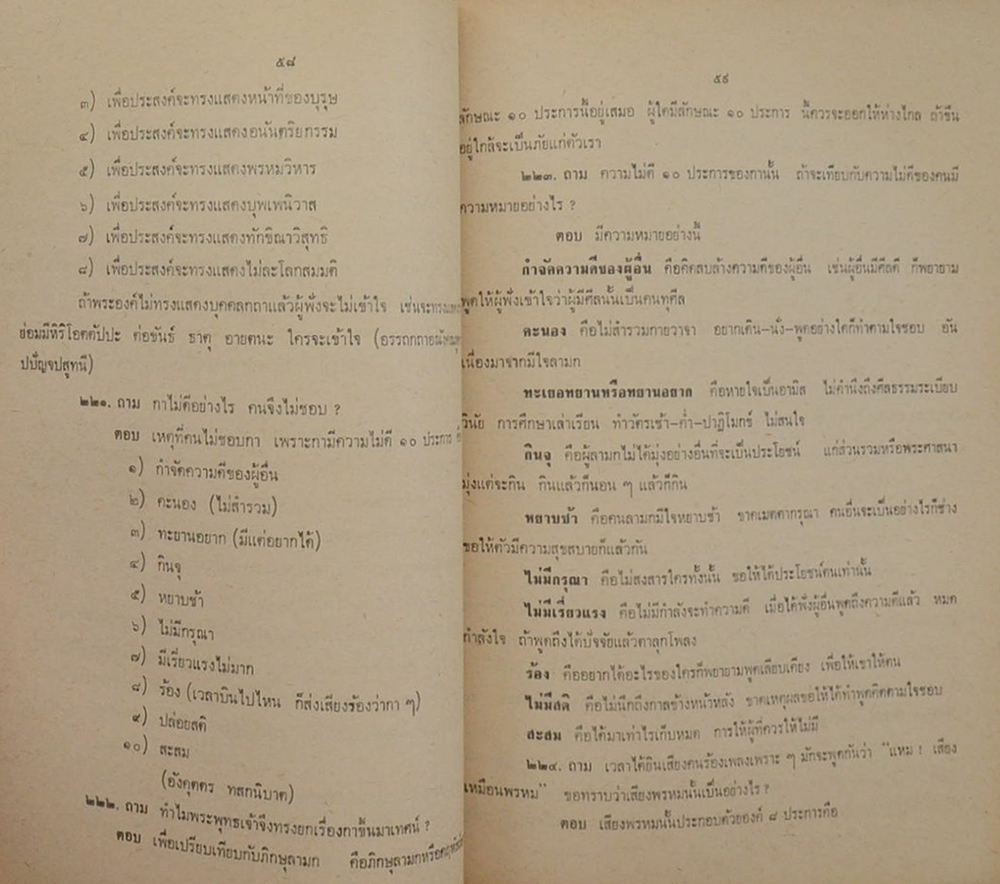 ๕๘
๓) เพื่อประสงค์จะทรงแสดงหน้าที่ของบุรุษ
๔) เพื่อประสงค์จะทรงแสดงอนันตริยกรรม
๕) เพื่อประสงค์จะทรงแสดงพรหมวิหาร
๖) เพื่อประสงค์จะทรงแสดงบุพเพนิวาส
๗) เพื่อประสงค์จะทรงแสดงทักขิณาวิสุทธิ
๘) เพื่อประสงค์จะทรงแสดงไม่ละโลกสมมติ
ถ้าพระองค์ไม่ทรงแสดงบุคคลกถาแล้วผู้ฟังจะไม่เข้าใจ เช่นจะทรงแสดง
ย่อมมีหิริโอตตัปปะ ต่อขันธ์ ธาตุ อายตนะ ใครจะเข้าใจ (อรรถกถาอนังคณ
ปปัญจปสูทนี)
๒๒๑. ถาม กาไม่ดีอย่างไร คนจึงไม่ชอบ ?
ตอบ เหตุที่คนไม่ชอบกา เพราะกามีความไม่ดี ๑๐ ประการ
๑) กำจัดความดีของผู้อื่น
๒) คะนอง (ไม่สำรวม)
๓) ทะยานอยาก (มีแต่อยากได้)
๔) กินจุ
๕) หยาบช้า
๖) ไม่มีกรุณา
๗) มีเรี่ยวแรงไม่มาก
๘) ร้อง (เวลาบินไปไหน ก็ส่งเสียงร้องว่ากา ๆ)
๙) ปล่อยสติ
๑๐) สะสม
(อังคุตตร ทสกนิบาต)
๒๒๒. ถาม ทำไมพระพุทธเจ้าจึงทรงยกเรื่องกาขึ้นมาเทศน์ ?
ตอบ เพื่อเปรียบเทียบกับภิกษุลามก คือภิกษุลามกหรือ
๕๙
ลักษณะ ๑๐ ประการนี้อยู่เสมอ ผู้ใดมีลักษณะ ๑๐ ประการ นี้ควรจะออกให้ห่างไกล ถ้าขืน
อยู่ใกล้จะเป็นภัยแก่ตัวเรา
๒๒๓. ถาม ความไม่ดี ๑๐ ประการของกานั้น ถ้าจะเทียบกับความไม่ดีของคนมี
ความหมายอย่างไร ?
ตอบ มีความหมายอย่างนี้
กำจัดความดีของผู้อื่น คือคิดลบล้างความดีของผู้อื่น เช่นผู้อื่นมีศีลดี ก็พยายาม
พูดให้ผู้ฟังเข้าใจว่าผู้มีศีลนั้นเป็นคนทุศีล
คะนอง คือไม่สำรวมกายวาจา อยากเดิน-นั่ง-พูดอย่างใดก็ทำตามใจชอบ อัน
เนื่องมาจากมีใจลามก
ทะเยอทยานหรือทยานอยาก คือหายใจเป็นอามิส ไม่คำนึงถึงศีลธรรมระเบียบ
วินัย การศึกษาเล่าเรียน ทำวัตรเช้า-ค่ำ-ปาฏิโมกข์ ไม่สนใจ
กินจุ คือผู้ลามกไม่ได้มุ่งอย่างอื่นที่จะเป็นประโยชน์ แก่ส่วนรวมหรือพระศาสนา
มุ่งแต่จะกิน กินแล้วก็นอน ๆ แล้วก็กิน
หยาบช้า คือคนลามกมีใจหยาบช้า ขาดเมตตากรุณา คนอื่นจะเป็นอย่างไรก็ช่าง
ขอให้ตัวมีความสุขสบายก็แล้วกัน
ไม่มีกรุณา คือไม่สงสารใครทั้งนั้น ขอให้ได้ประโยชน์ตนเท่านั้น
ไม่มีเรี่ยวแรง คือไม่มีกำลังจะทำความดี เมื่อได้ฟังผู้อื่นพูดถึงความดีแล้ว หมด
กำลังใจ ถ้าพูดถึงได้ปัจจัยแล้วตาลุกโพลง
ร้อง คืออยากได้อะไรของใครก็พยายามพูดเลียบเคียง เพื่อให้เขาให้ตน
ไม่มีสติ คือไม่นึกถึงกาลข้างหน้าหลัง ขาดเหตุผลขอให้ได้ทำพูดคิดตามใจชอบ
สะสม คือได้มาเท่าไรเก็บหมด การให้ผู้ที่ควรให้ไม่มี
๒๒๔. ถาม เวลาได้ยินเสียงคนร้องเพลงเพราะ ๆ มักจะพูดกันว่า "แหม ! เสียง
เหมือนพรหม" ขอทราบว่าเสียงพรหมนั้นเป็นอย่างไร ?
ตอบ เสียงพรหมนั้นประกอบด้วยองค์ ๘ ประการคือ